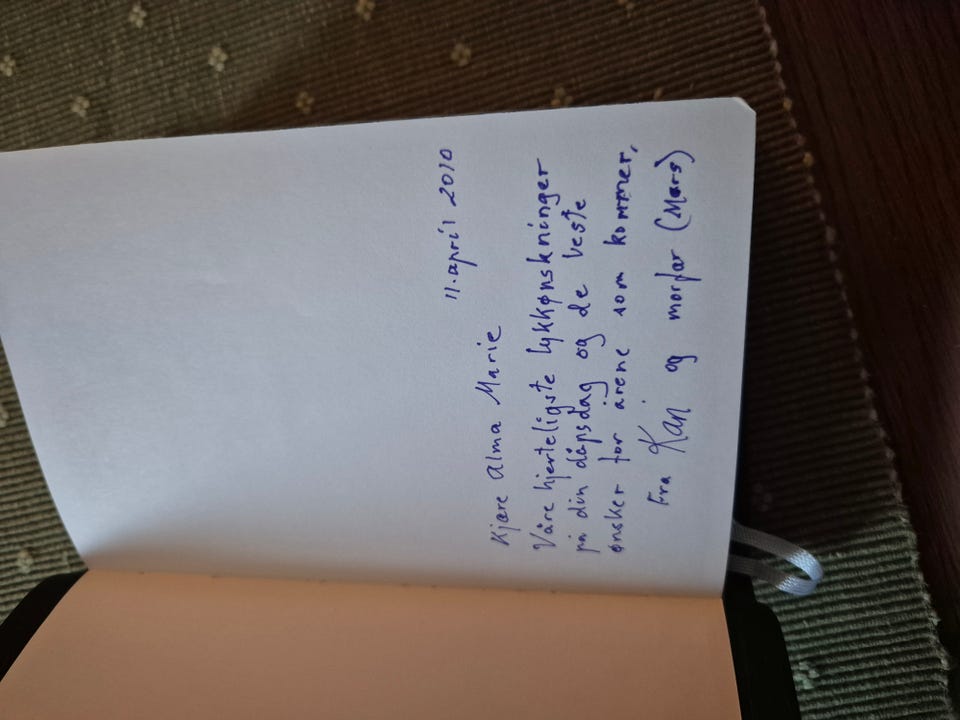 11. april 2010
Kjære Alma Marie
Våre hjerteligste lykkønskninger
på din dåpsdag og de beste
ønsker for årene som kommer,
Fra Kari og morfar (Mars)